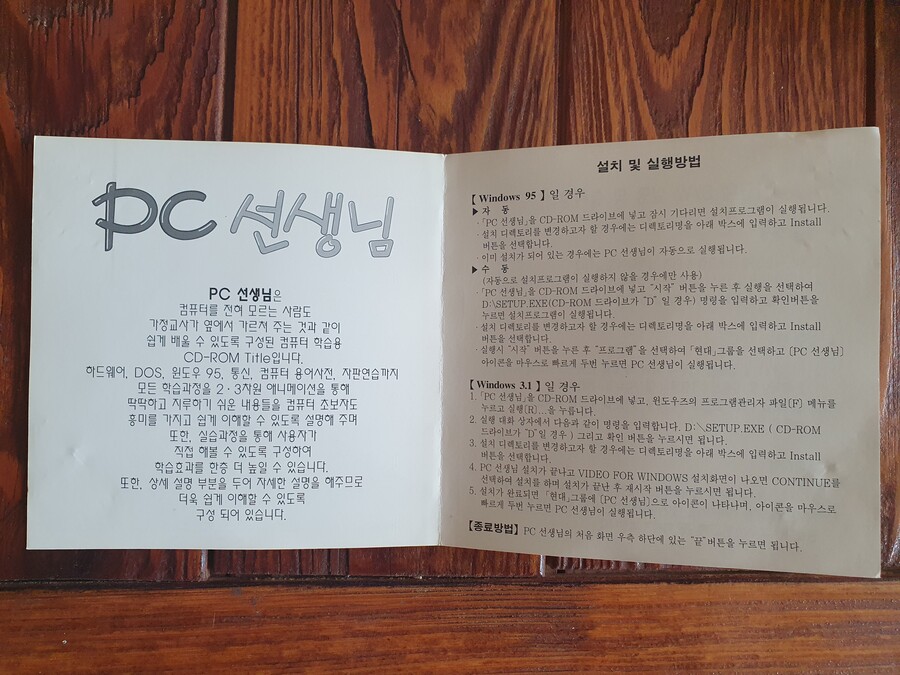 PC 선생님
PC 선생님은
컴퓨터를 전혀 모르는 사람도
가정교사가 옆에서 가르쳐 주는 것과 같이
쉽게 배울 수 있도록 구성된 컴퓨터 학습용
CD-ROM Title입니다.
하드웨어, DOS, 윈도우 95, 통신, 컴퓨터 용어사전, 자판연습까지
모든 학습과정을 2·3차원 애니메이션을 통해
딱딱하고 지루하기 쉬운 내용들을 컴퓨터 초보자도
흥미를 가지고 쉽게 이해할 수 있도록 설명해 주며
또한, 실습과정을 통해 사용자가
직접 해볼 수 있도록 구성하여
학습효과를 한층 더 높일 수 있습니다.
또한, 상세 설명 부분을 두어 자세한 설명을 해주므로
더욱 쉽게 이해할 수 있도록
구성 되어 있습니다.
설치 및 실행방법
【Windows 95】일 경우
▶자 동
·「PC 선생님」을 CD-ROM 드라이브에 넣고 잠시 기다리면 설치프로그램이 실행됩니다.
·설치 디렉토리를 변경하고자 할 경우에는 디렉토리명을 아래 박스에 입력하고 Install
버튼을 선택합니다.
·이미 설치가 되어 있는 경우에는 PC 선생님이 자동으로 실행됩니다.
▶수 동
(자동으로 설치프로그램이 실행하지 않을 경우에만 사용)
·「PC 선생님」을 CD-ROM 드라이브에 넣고 "시작" 버튼을 누른 후 실행을 선택하여
D:\SETUP.EXE(CD-ROM 드라이브가 "D" 일 경우) 명령을 입력하고 확인버튼을
누르면 설치프로그램이 실행됩니다.
·설치 디렉토리를 변경하고자 할 경우에는 디렉토리명을 아래 박스에 입력하고 Install
버튼을 선택합니다.
·실행시 "시작" 버튼을 누른 후 "프로그램"을 선택하여「현대」그룹을 선택하고 [PC 선생님]
아이콘을 마우스로 빠르게 두번 누르면 PC 선생님이 실행됩니다.
【Windows 3.1】일 경우
1.「PC 선생님」을 CD-ROM 드라이브에 넣고, 윈도우즈의 프로그램관리자 파일[F] 메뉴를
누르고 실행[R]...을 누릅니다.
2. 실행 대화 상자에서 다음과 같이 명령을 입력합니다. D:\SETUP.EXE ( CD-ROM
드라이브가 "D"일 경우 ) 그리고 확인 버튼을 누르시면 됩니다.
3. 설치 디렉토리를 변경하고자 할 경우에는 디렉토리명을 아래 박스에 입력하고 Install
버튼을 선택합니다.
4. PC 선생님 설치가 끝나고 VIDEO FOR WINDOWS 설치화면이 나오면 CONTINUE를
선택하여 설치를 하며 설치가 끝난 후 재시작 버튼을 누르시면 됩니다.
5. 설치가 완료되면「현대」그룹에 [PC 선생님]으로 아이콘이 나타나며, 아이콘을 마우스로
빠르게 두번 누르면 PC 선생님이 실행됩니다.
【종료방법】PC 선생님의 처음 화면 우측 하단에 있는 "끝"버튼을 누르면 됩니다.